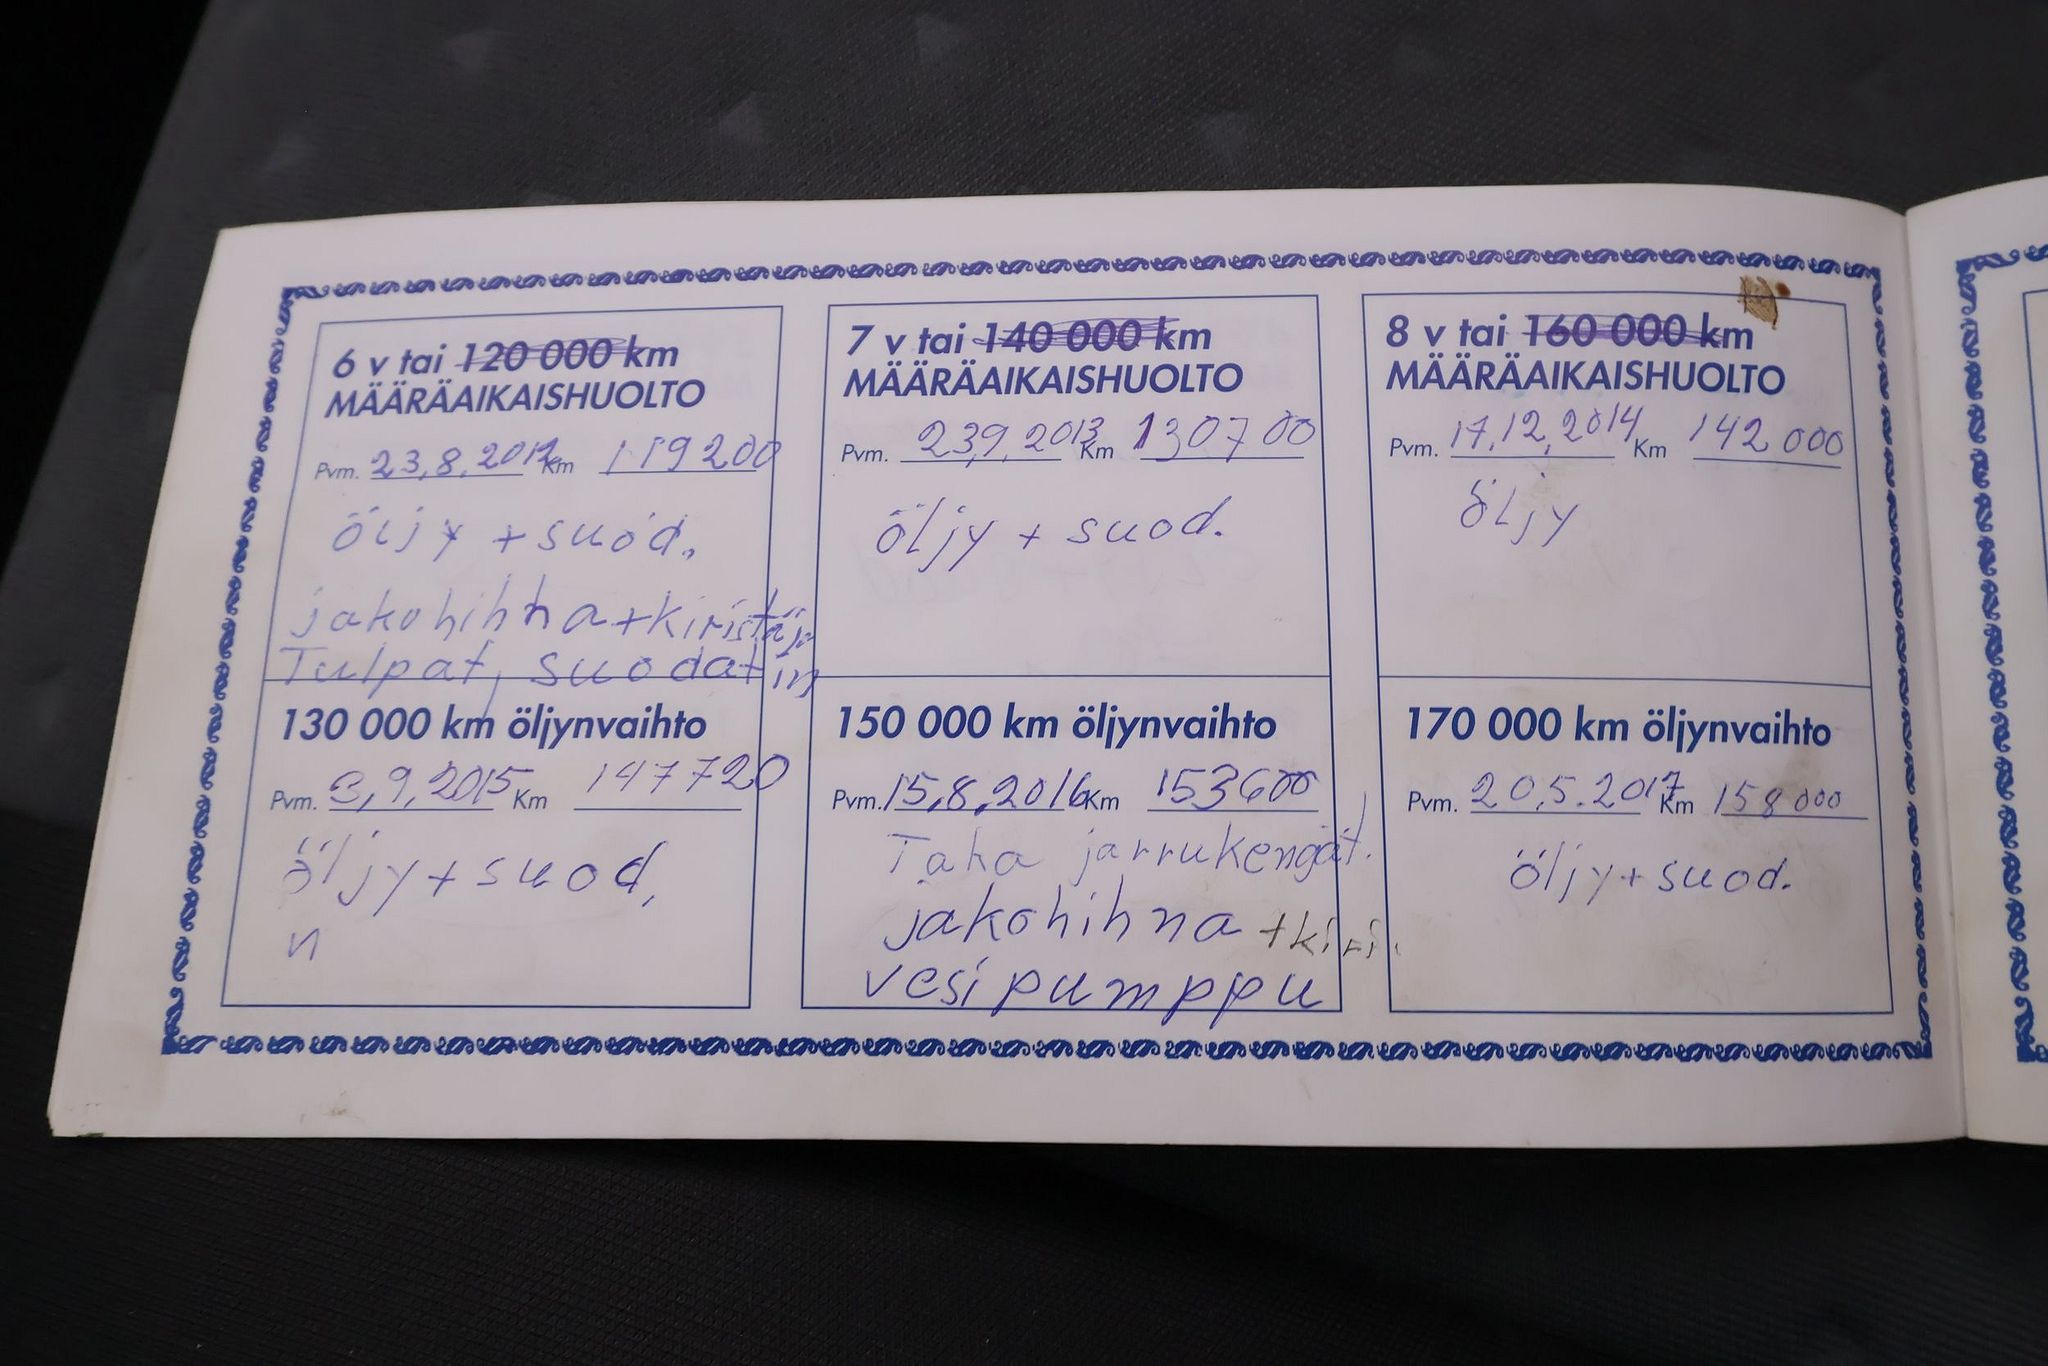 6 v tai 120 000 km
MÄÄRÄAIKAISHUOLTO
Pvm. 23.8.2012 Km 119200
öljy + suod.
jakohihna + kiristäjä
Tulpat, suodatin
130 000 km öljynvaihto
Pvm. 3.9.2015 Km 147720
öljy + suod.
n
7 v tai 140 000 km
MÄÄRÄAIKAISHUOLTO
Pvm. 23.9.2013 Km 130700
öljy + suod.
150 000 km öljynvaihto
Pvm. 15.8.2016 Km 153600
Taka jarrukengät.
jakohihna + kiri.
vesipumppu
8 v tai 160 000 km
MÄÄRÄAIKAISHUOLTO
Pvm. 17.12.2014 Km 142 000
öljy
170 000 km öljynvaihto
Pvm. 20.5.2017 Km 158000
öljy + suod.